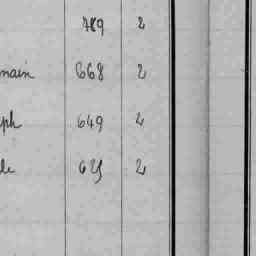 789 2
main 668 2
ph 649 2
le 625 2